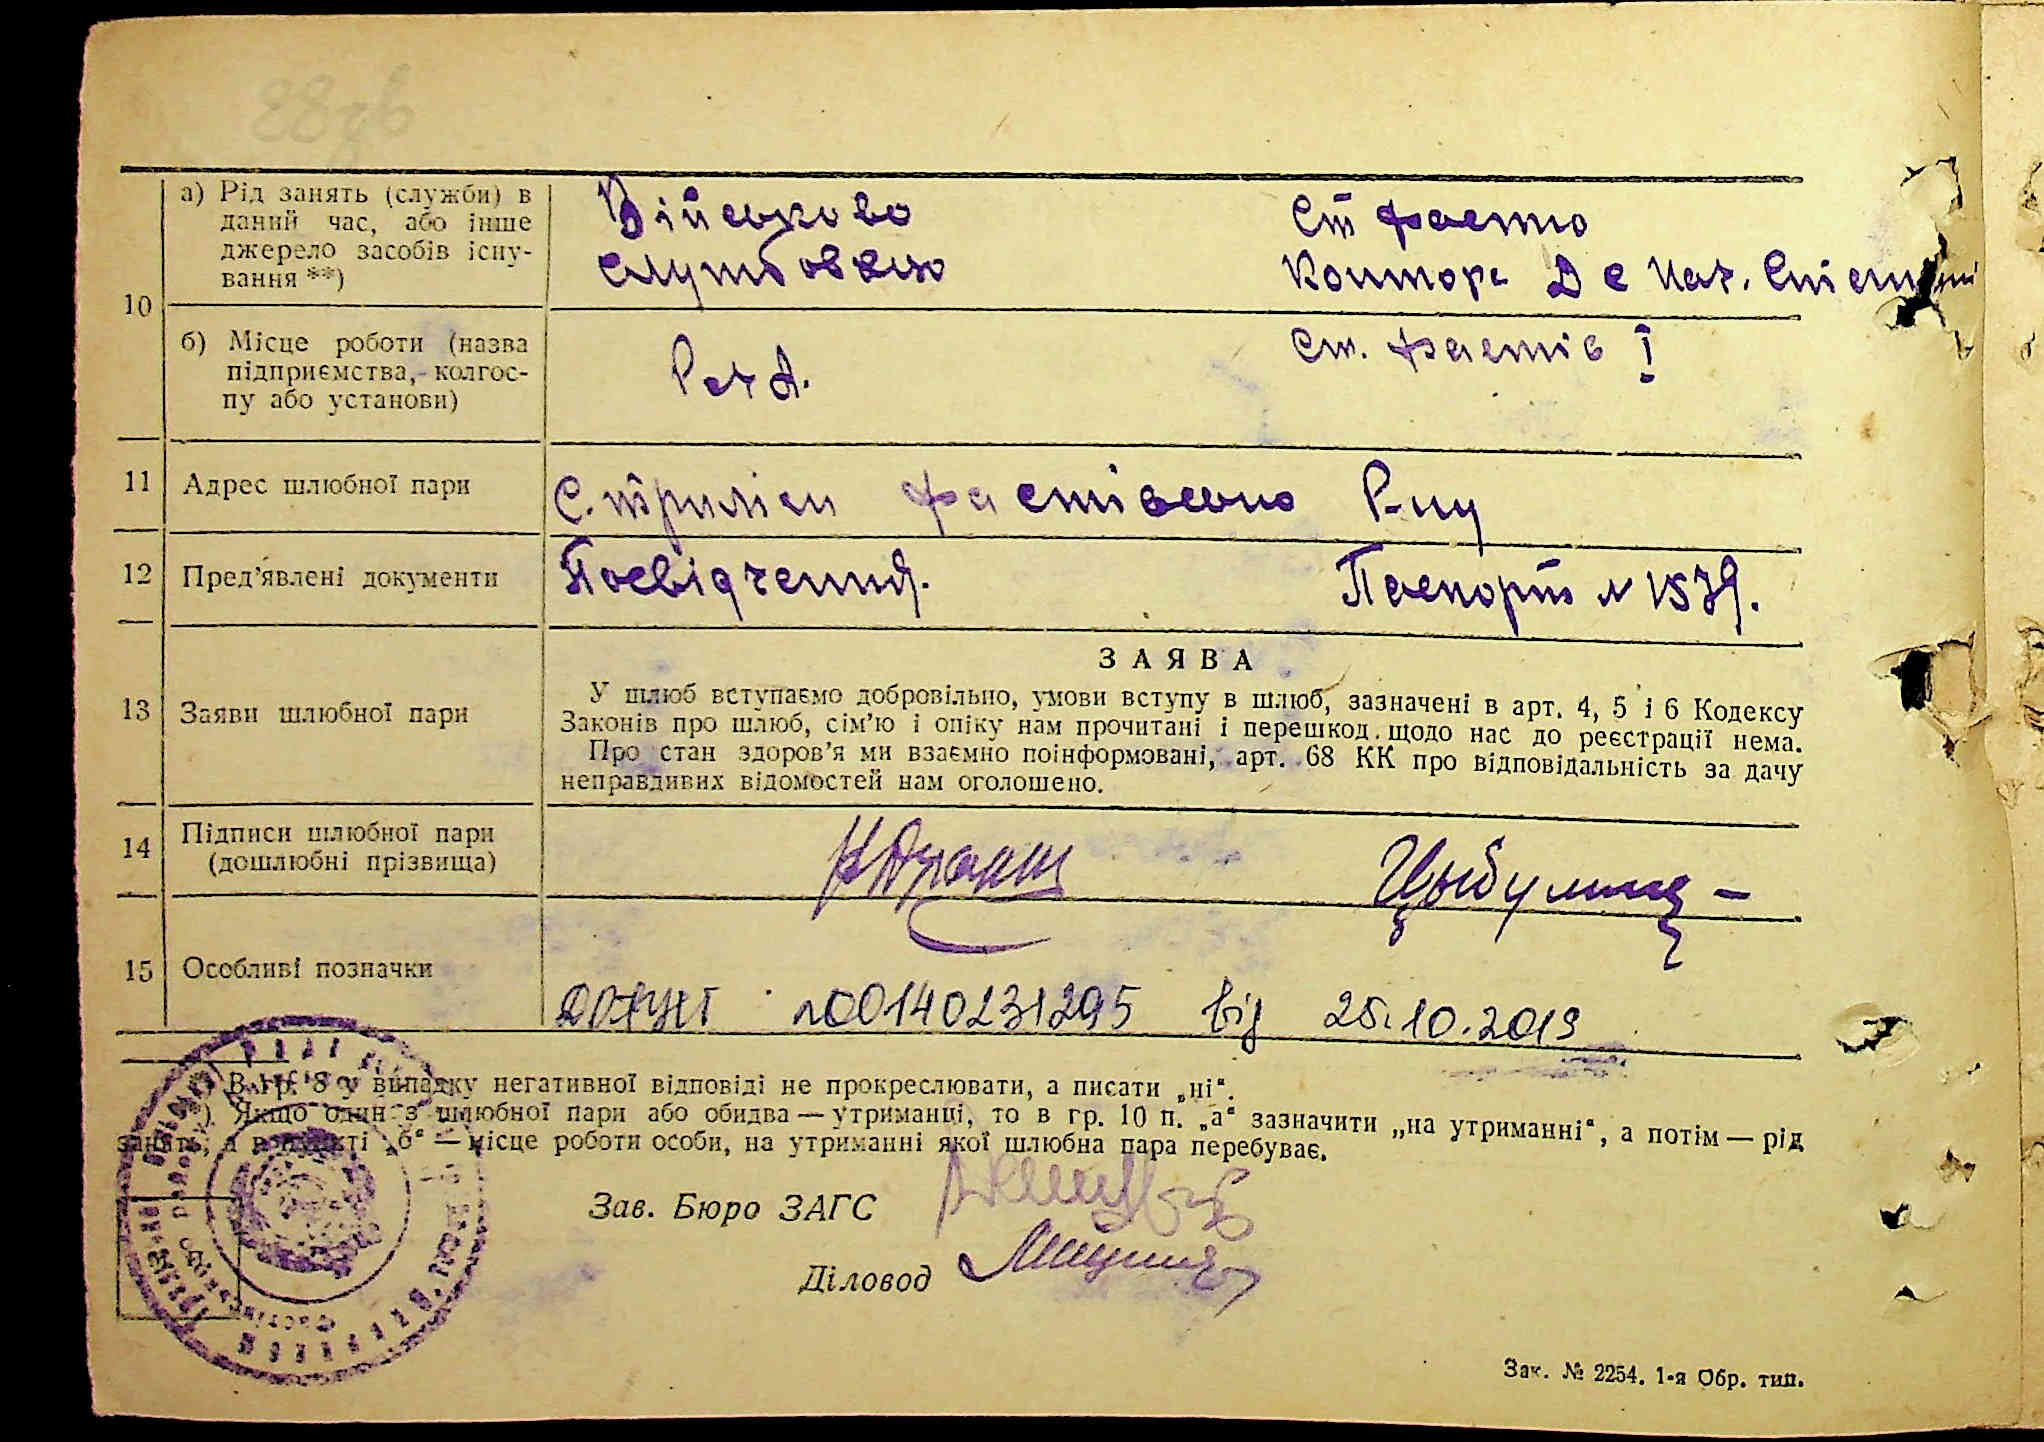 10
а) Рід занять (служби) в
даний час, або інше
джерело засобів існу-
вання **)
Військово
службовец
Ст
Контора Д С Нач.
б) Місце роботи (назва
підприємства, колгос-
пу або установи)
Ст. Фастів I
11
Адрес шлюбної пари
Фастівсько Р-ну
12
Пред’явлені документи
Посвідчення.
Паспорт № 1579.
13
Заяви шлюбної пари
ЗАЯВА
У шлюб вступаємо добровільно, умови вступу в шлюб, зазначені в арт. 4, 5 і 6 Кодексу
Законів про шлюб, сім’ю і опіку нам прочитані і перешкод щодо нас до реєстрації нема.
Про стан здоров’я ми взаємно поінформовані, арт. 68 КК про відповідальність за дачу
неправдивих відомостей нам оголошено.
14
Підписи шлюбної пари
(дошлюбні прізвища)
15
Особливі позначки
№00140231295 від 25.10.2019
*) В гр. 8 у випадку негативної відповіді не прокреслювати, а писати „ні“.
**) Якщо один з шлюбної пари або обидва — утриманці, то в гр. 10 п. „а“ зазначити „на утриманні“, а потім — рід
занять, а в пункті „б“ — місце роботи особи, на утриманні якої шлюбна пара перебуває.
Зав. Бюро ЗАГС
Діловод
Зак. № 2254. 1-я Обр. тип.